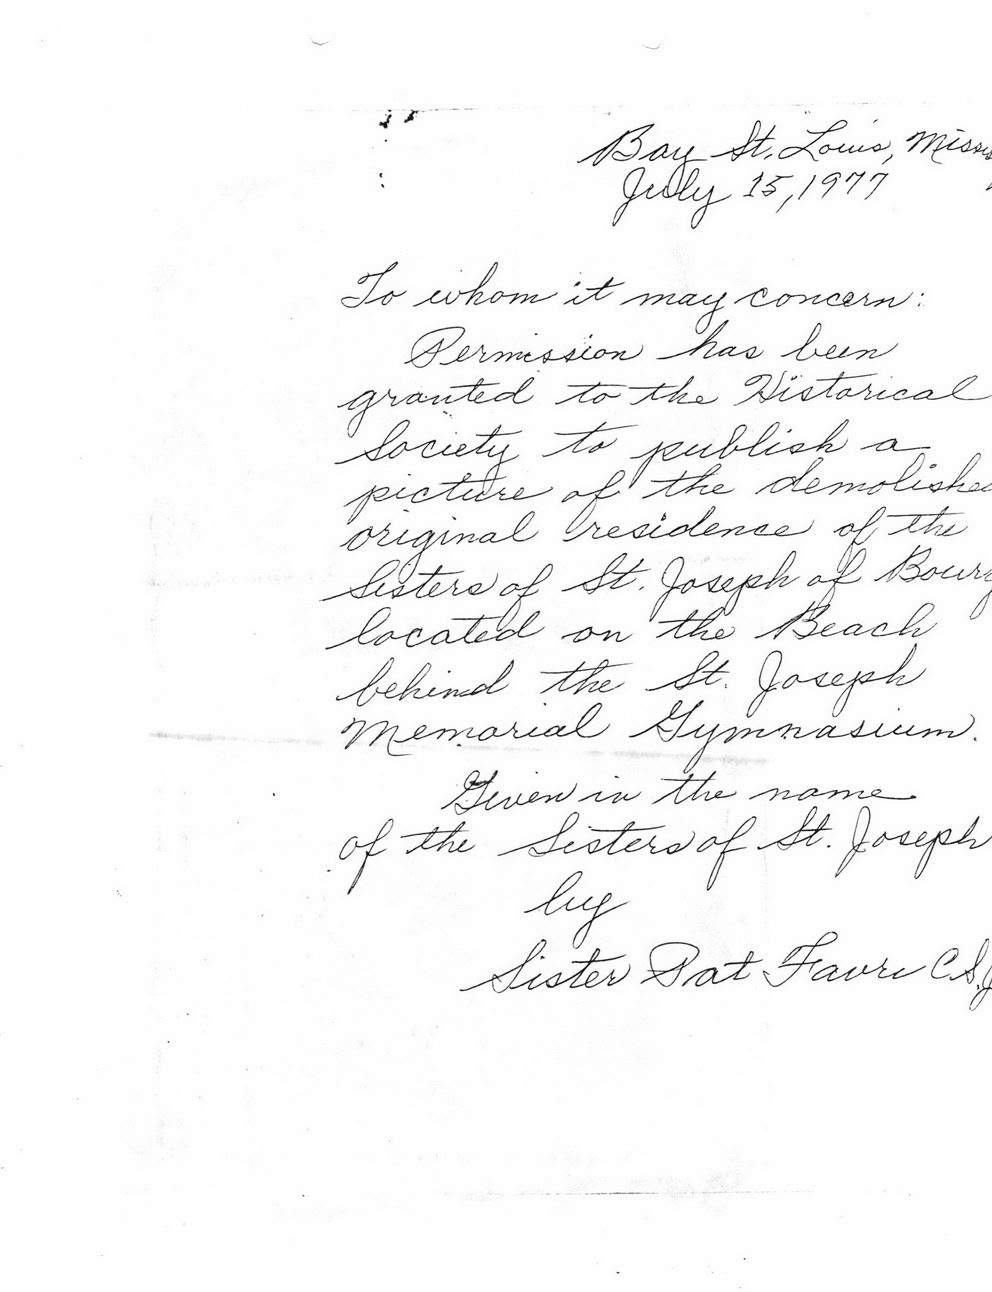 Bay St. Louis, Missis
July 15, 1977
To whom it may concern:
Permission has been
granted to the Historical
Society to publish a
picture of the demolished
original residence of the
Sisters of St. Joseph of Bourg
located on the Beach
behind the St. Joseph
Memorial Gymnasium.
Given in the name
of the Sisters of St. Joseph
by
Sister Pat Favre C.S.J